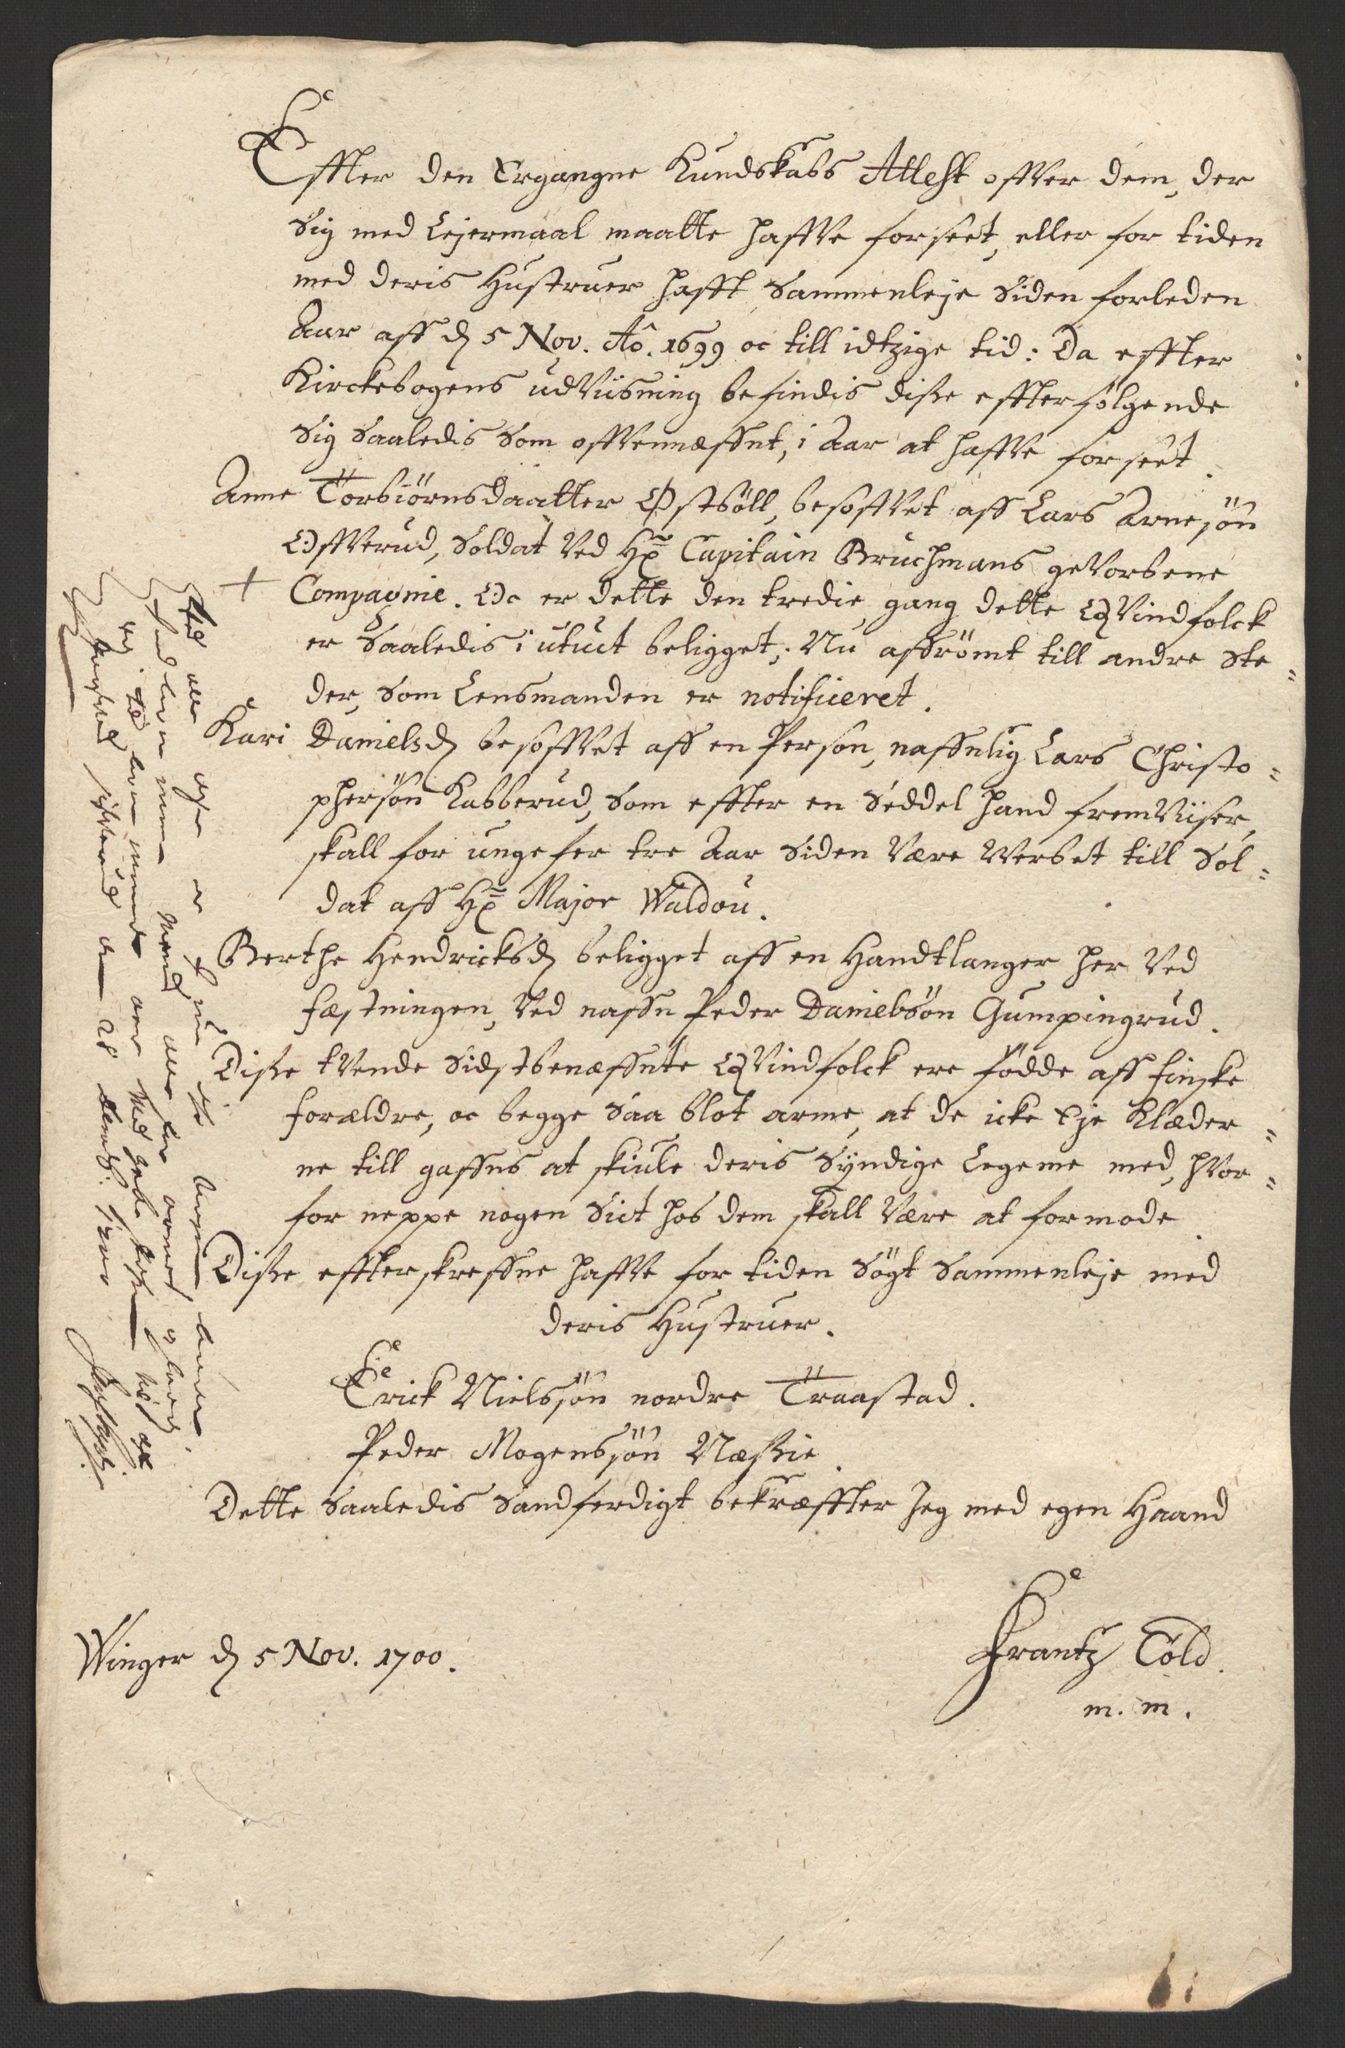 Effter den Ergangne Kundskabs Attest offver dem, der
sig med Lejermaal maatte haffve forseet, eller for tiden
med deris Hustruer hafft Sammenleje siden forleden
Aar aff d 5 Nov. Ao. 1699 oc till idtzige tid: Da effter
Kirckebogens udviisning befindis disse effterfølgende
sig saaledis som offvennæffnt, i Aar at haffve forseet.
Anne Torbiørnsdaatter Østbøll, besoffvet aff Lars Arnesøn
Offverud, Soldat ved Hr Capitain Bruchmans gevorbene
+ Compagnie. Oc er dette den tredie gang dette Qvindfolck
er saaledis i utuct beligget; Nu affrømt till andre Ste-
der, som Lensmanden er notificeret.
Kari Danielsd besoffvet aff en Person, naffnlig Lars Christo-
phersøn Kabberud, som effter en Seddel hand fremviiser,
skall for ungefer tre Aar siden være verbet till Sol-
dat aff Hr Major Waldou.
Berthe Hendricksd beligget aff en Handtlanger her ved
fæstningen, ved naffn Peder Danielsøn Gumpingrud.
Disse tvende sidstbenæffnte Qvindfolck ere fødde aff finske
forældre, oc begge saa blot arme, at de icke eje Klæder-
ne till gaffns at skiule deris Syndige Legeme med, hvor-
for neppe nogen Sict hos dem skall være at formode
Disse effterskreffne haffve for tiden søgt Sammenleje med
deris Hustruer.
Erick Nielssøn nordre Traastad.
Peder Mogenssøn Næssie.
Dette saaledis sandferdigt bekræffter Jeg med egen Haand
Winger d 5 Nov. 1700.
Frantz Told.
m. m.